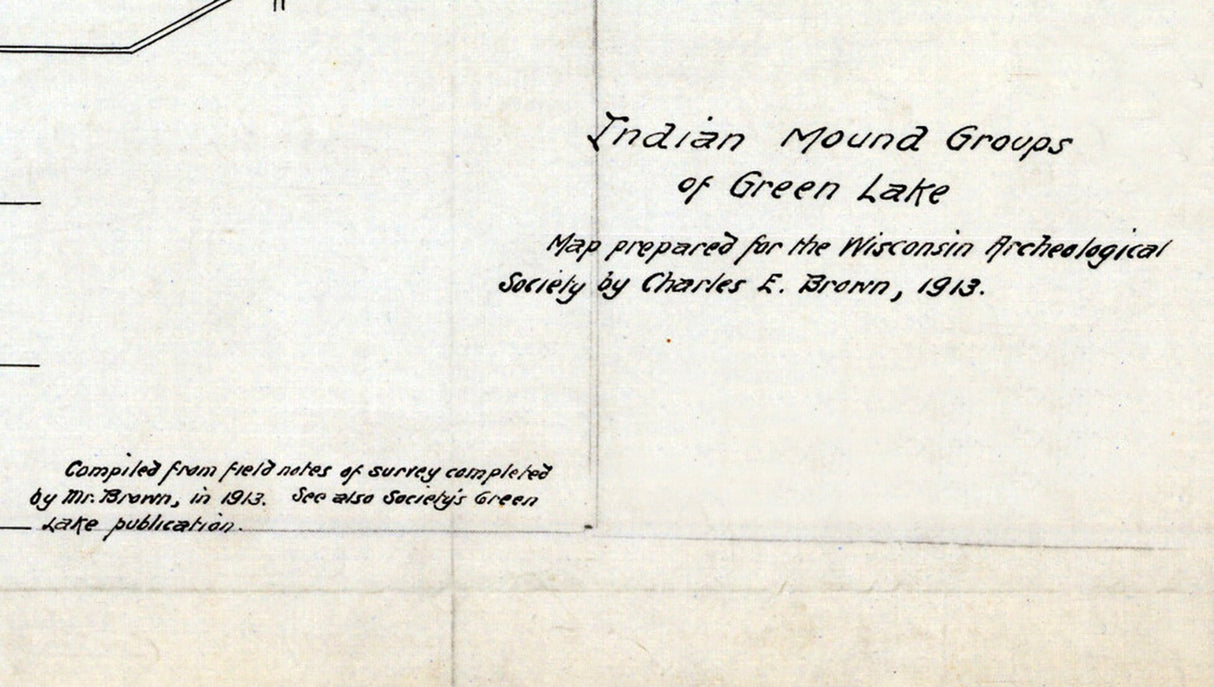 Indian Mound Groups
of Green Lake
Map prepared for the Wisconsin Archeological
Society by Charles E. Brown, 1913.
Compiled from field notes of survey completed
by Mr. Brown, in 1913. See also Society's Green
Lake publication.